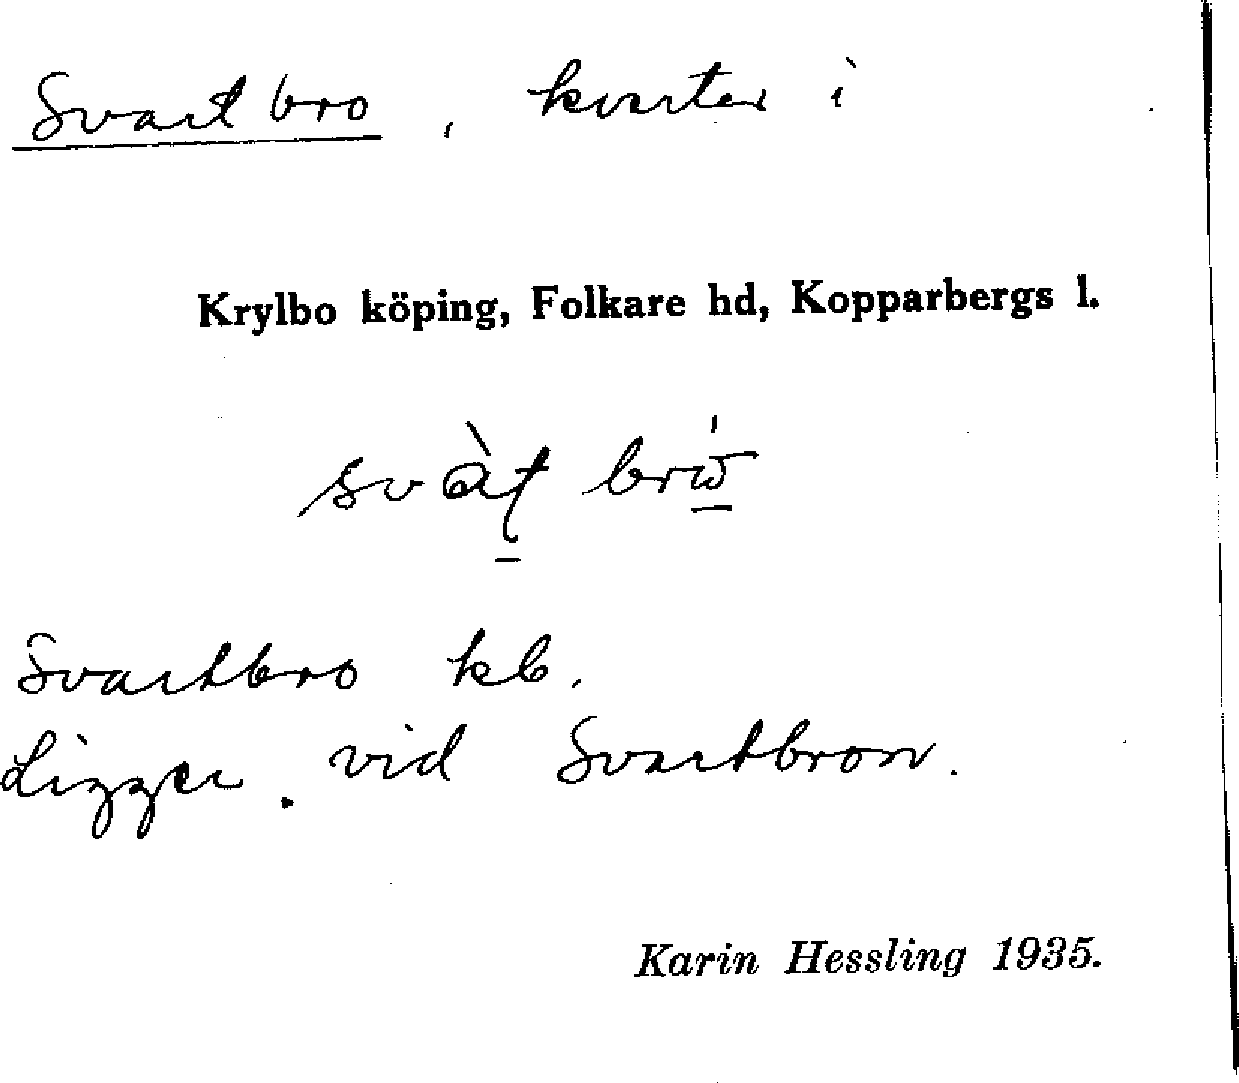 Svartbro, kvarter i
Krylbo köping, Folkare hd, Kopparbergs l.
Svartbro kb.
Ligger. vid Svartbron.
Karin Hessling 1935.